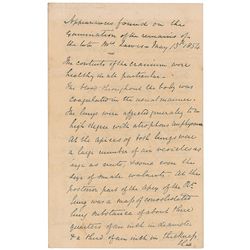 Appearances found on the
Examination of the remains of
the late Mr Lawes - May 13th 1854
The contents of the cranium were
healthy in all particular.
The blood throughout the body was
coagulated in the usual manner.
The lungs were affected generally to a
high degree with atrophous emphysema
At the apices of both lungs were
a large number of air vesicles as
large as nuts, some even the
size of small walnuts. At the
posterior part of the apex of the Rt
lung was a mass of consolidated
lung substance of about three
quarters of an inch in diameter
& a third of an inch in thickness